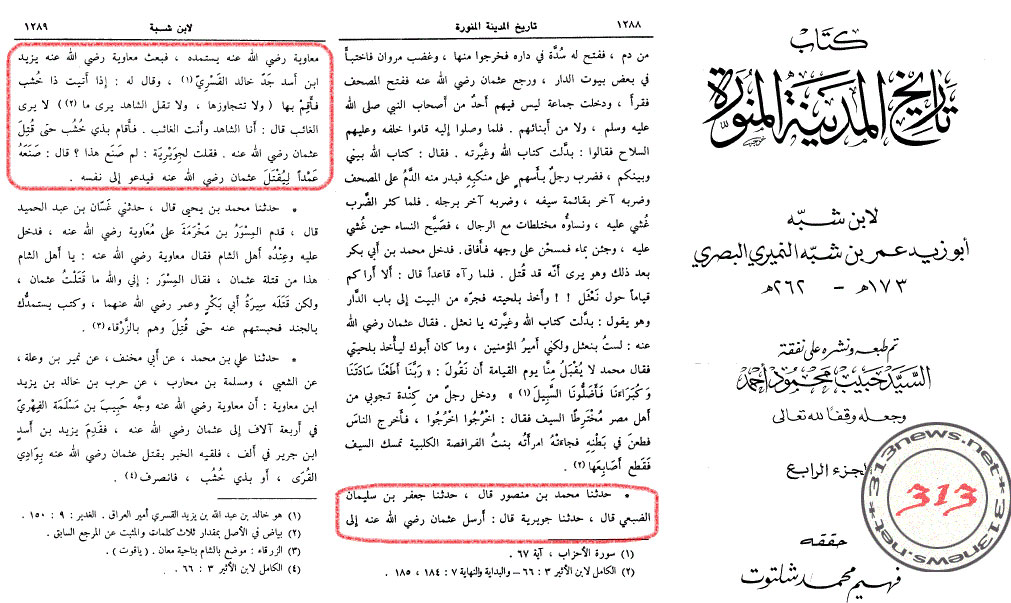 كتاب
تاريخ المدينة المنورة
لابن شبّه
أبو زيد عمر بن شبّه النميري البصري
١٧٣هـ - ٢٦٢هـ
تم طبعه ونشره على نفقة
السيد حبيب محمود أحمد
وجعله وقفا لله تعالى
الجزء الرابع
حققه
فهيم محمد شلتوت
313news.net
313
١٢٨٨ تاريخ المدينة المنورة
من دم ، ففتح له سُدَّة في داره فخرجوا منها ، وغضب مروان فاختبأ
في بعض بيوت الدار ، ورجع عثمان رضي الله عنه ففتح المصحف
فقرأ ، ودخلت جماعة ليس فيهم أحدٌ من أصحاب النبي صلى الله
عليه وسلم ، ولا من أبنائهم . فلما وصلوا إليه قاموا خلفه وعليهم
السلاح فقالوا : بدَّلت كتاب الله وغيَّرته . فقال : كتاب الله بيني
وبينكم ، فضرب رجلٌ بأسهمٍ على منكبِهِ فبدر منه الدَّمُ على المصحف
وضربه آخر بقائمة سيفه ، وضربه آخر برجله . فلما كثر الضَّرب
غُشي عليه ، ونساؤه مختلطات مع الرجال ، فصَيَّح النساء حين غُشي
عليه ، وجئن بماء فمسحْن على وجهه فأفاق. فدخل محمد بن أبي بكر
بعد ذلك وهو يرى أنَّه قد قُتل . فلما رآه قاعداً قال : ألا أراكم
قياماً حول نَعْثَل ! ! وأخذ بلحيته فجرّه من البيت إلى باب الدَّار
وهو يقول : بدَّلت كتاب الله وغيَّرته يا نعثل . فقال عثمان رضي الله
عنه : لستُ بنعثل ولكني أميرُ المؤمنين ، وما كان أبوك ليأخذ بلحيتي
فقال محمد لا يُقْبَلُ مِنَّا يوم القيامة أن نَقُولَ : « رَبَّنَا أطَعْنَا سَادَتَنَا
وَكُبَرَاءَنَا فَأَضَلُّونَا السَّبِيلَ (١) » ودخل رجلٌ من كِنْدة تجوبي من
أهل مصر مُخْتَرِطًا السيف فقال : اخْرُجُوا اخْرُجُوا ، فأخرج الناسَ
فطعن في بَطْنِهِ فجاءتْهُ امرأتُه بنتُ الفرافصة الكلبية تمسك السيف
فقَطع أصابِعَها (٢) .
• حدثنا محمد بن منصور قال ، حدثنا جعفر بن سليمان
الضبعي قال ، حدثنا جويرية قال : أرسل عثمان رضي الله عنه إلى
(١) سورة الأحزاب ، آية ٦٧ .
(٢) الكامل لابن الأثير ٣ : ٦٦ – والبداية والنهاية ٧ : ١٨٤ ، ١٨٥ .
لابن شبة ١٢٨٩
معاوية رضي الله عنه يستمده ، فبعث معاوية رضي الله عنه يزيد
ابن أسد جدّ خالد القَسْريّ (١) ، وقال له : إذا أتيت ذا خُشب
فأقِمْ بها ( ولا تتجاوزها ، ولا تقل الشاهد يرى ما (٢)) لا يرى
الغائب قال : أنا الشاهد وأنت الغائب . فأقام بذي خُشُب حتى قُتِلَ
عثمان رضي الله عنه . فقلت لجوَيْرِيَة : لم صنع هذا ؟ قال : صَنَعَهُ
عَمْداً لِيُقْتَلَ عثمان رضي الله عنه فيدعو إلى نفسه .
• حدثنا محمد بن يحيى قال ، حدثني غَسَّان بن عبد الحميد
قال ، قدم المِسْوَرُ بن مَخْرَمَةَ على مُعَاوية رضي الله عنه ، فدخل
عليه وعِنْدُه أهل الشام فقال معاوية رضي الله عنه : يا أهل الشام
هذا من قتلة عثمان ، فقال المِسْوَر : إني والله ما قَتَلْتُ عثمان ،
ولكن قَتَلَه سِيرَةُ أبي بَكْرٍ وعمر رضي الله عنهما ، وكتب يستمدُّك
بالجند فحبستهم عنه حتى قُتِلَ وهم بالزَّرْقاء (٣) .
• حدثنا علي بن محمد ، عن أبي مخنف ، عن نمير بن وعلة ،
عن الشعبي ، ومسلمة بن محارب ، عن حرب بن خالد بن يزيد
ابن معاوية : أن معاوية رضي الله عنه وجَّه حَبِيبَ بن مَسْلَمَة الفِهْريّ
في أربعة آلاف إلى عثمان رضي الله عنه ، فقَدِمَ يزيد بن أسدِ
ابن جرير في ألف ، فلقيه الخبر بقتل عثمان رضي الله عنه بِوَادِي
القُرَى ، أو بذي خُشُب ، فانصرف (٤) .
(١) هو خالد بن عبد الله بن يزيد القسري أمير العراق . الغدير : ٩ : ١٥٠ .
(٢) بياض في الأصل بمقدار ثلاث كلمات والمثبت عن المرجع السابق .
(٣) الزرقاء : موضع بالشام بناحية معان . ( ياقوت ) .
(٤) الكامل لابن الأثير ٣ : ٦٦ .